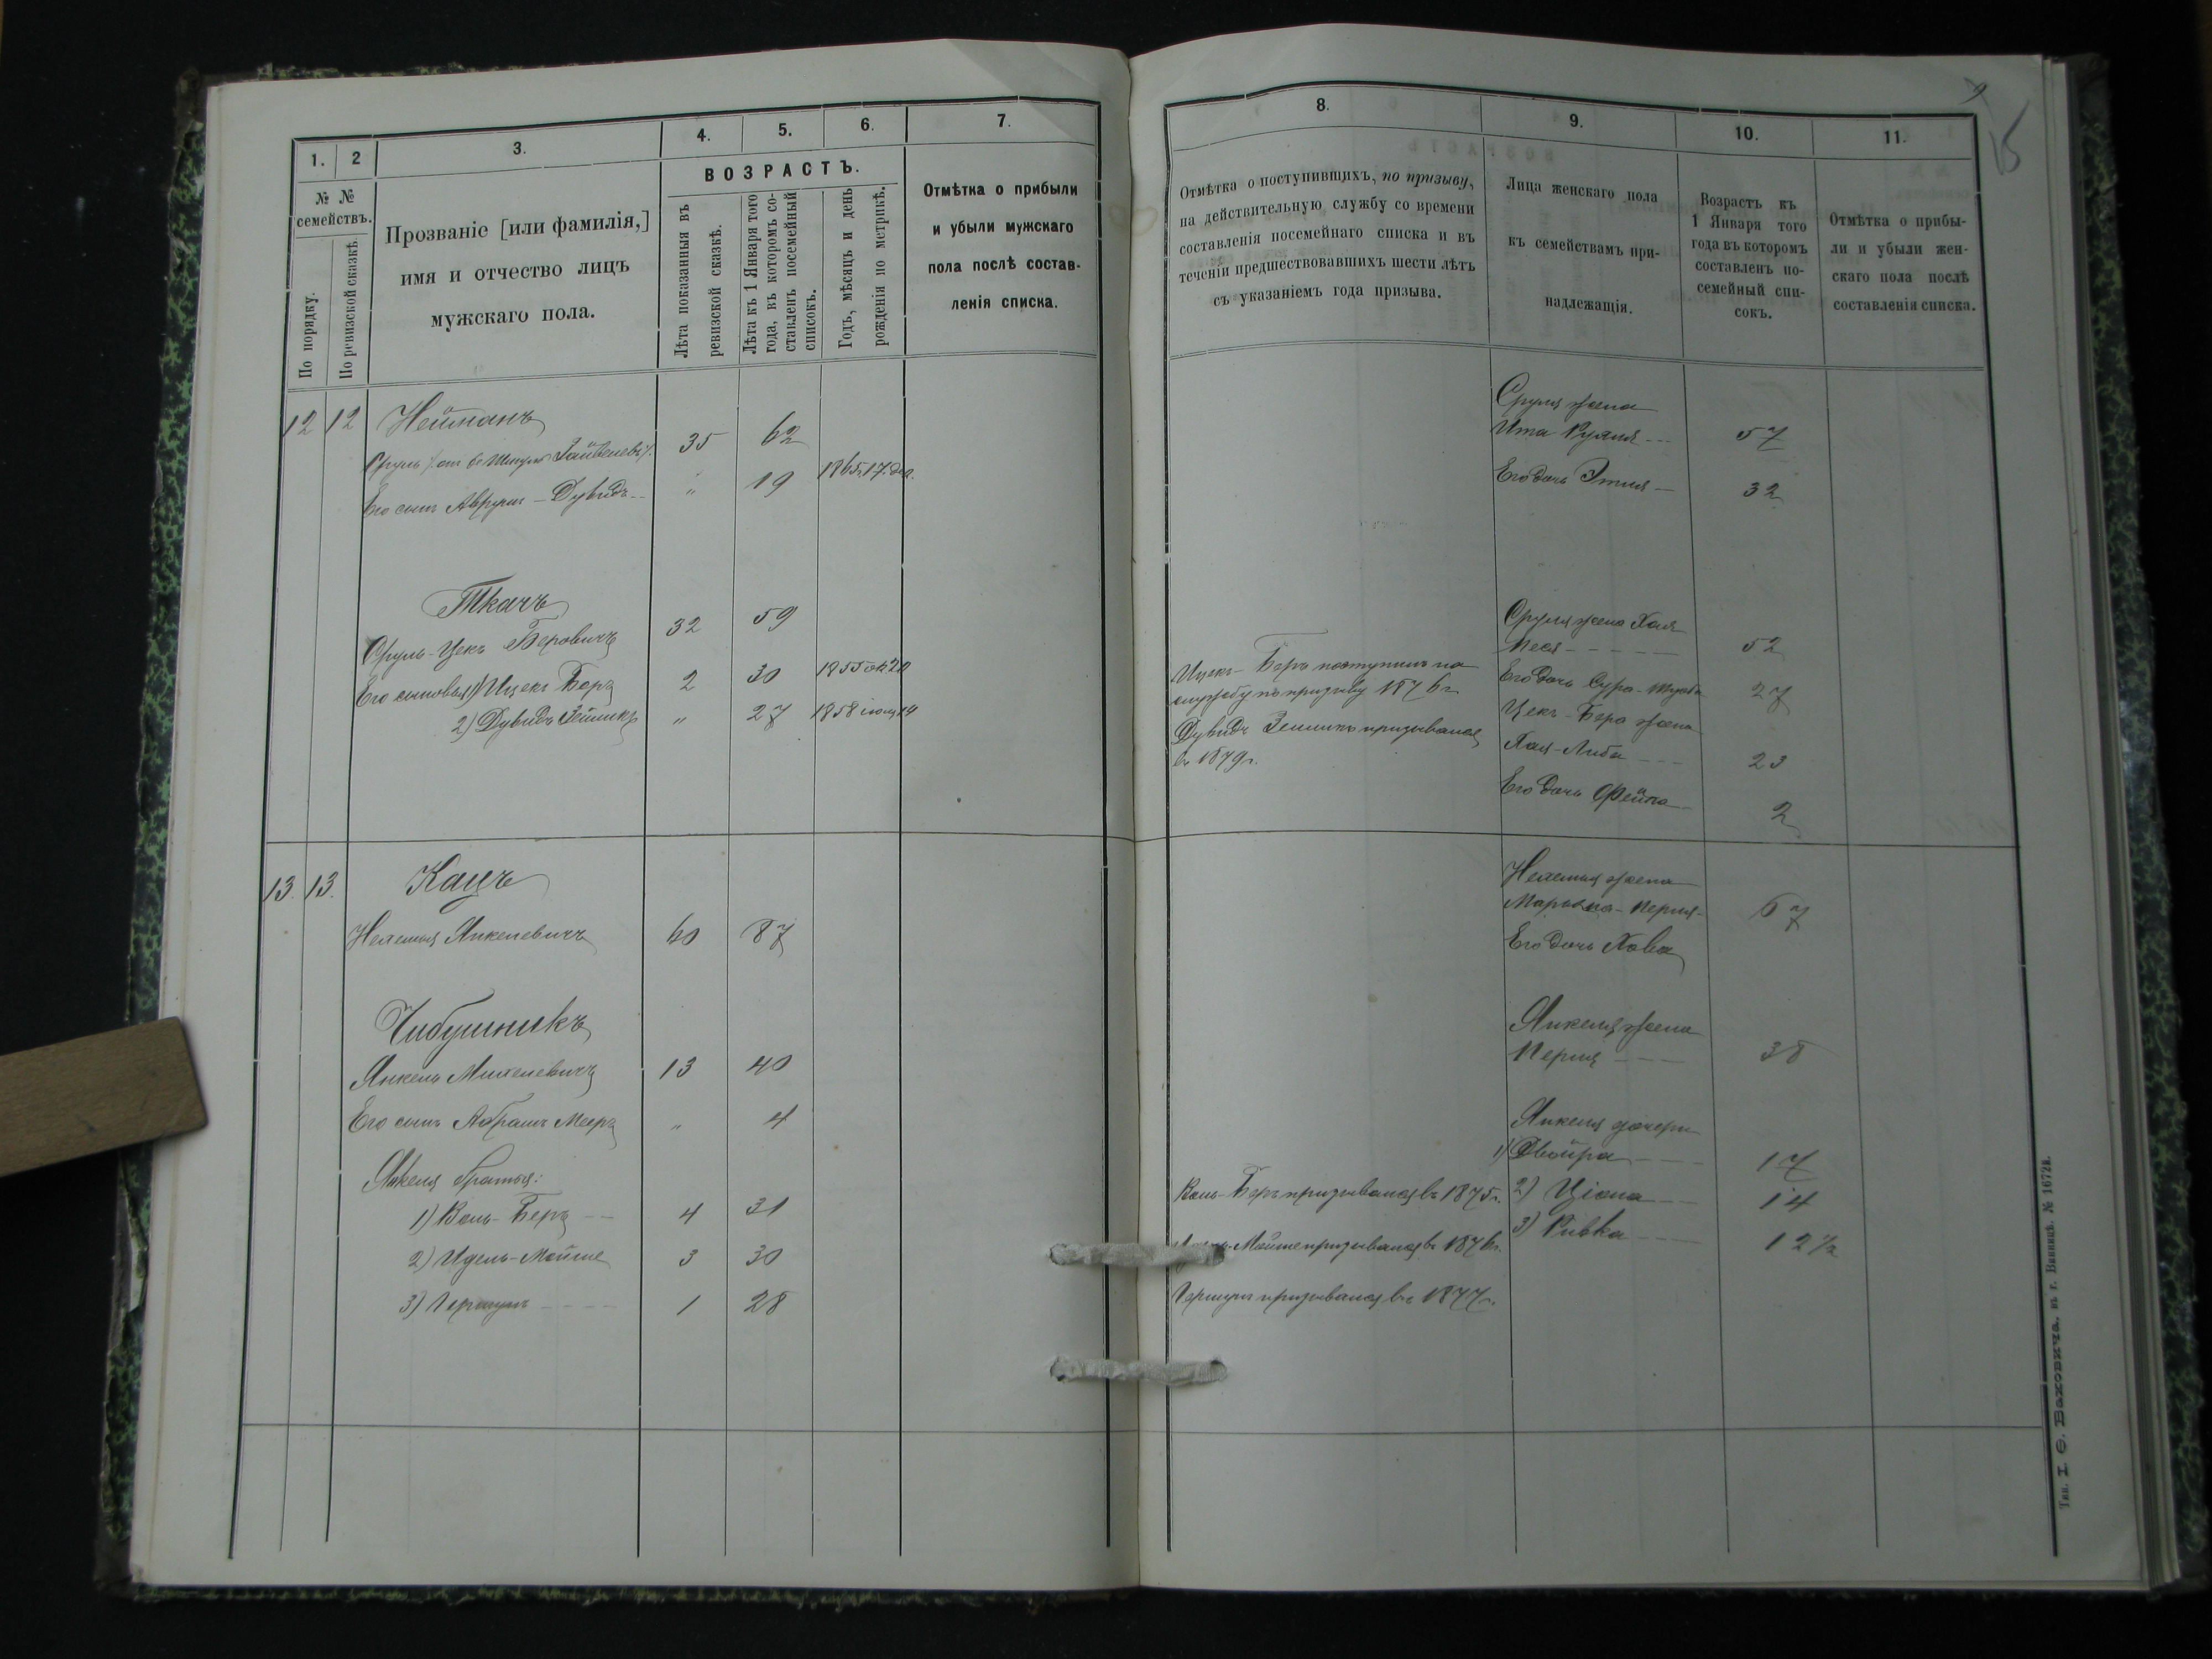 1.
2
3.
4.
5.
6.
7.
№ №
семействъ.
По порядку.
По ревизской сказкѣ.
Прозваніе [или фамилія,]
имя и отчество лицъ
мужскаго пола.
ВОЗРАСТЪ.
Лѣта показанныя въ
ревизской сказкѣ.
Лѣта къ 1 Января того
года, въ которомъ со-
ставленъ посемейный
списокъ.
Годъ, мѣсяцъ и день
рожденія по метрикѣ.
Отмѣтка о прибыли
и убыли мужскаго
пола послѣ состав-
ленія списка.
12 12 Нейманъ
Сруль Зайвелевъ 35 62
Его сынъ Аврумъ - Дувидъ -- " 19 1865 17 дек.
Ткачъ
Сруль-Ицекъ Беровичъ 32 59
Его сыновья 1) Ицекъ Беръ 2 30 1855 ок. 20
2) Дувидъ Зейликъ " 27 1858 14
13. 13. Кацъ
Нехемия Янкелевичъ 60 87
Чибушникъ
Янкель Михелевичъ 13 40
Его сынъ Абрамъ Мееръ " 4
Янкеля братья:
1) Воль-Беръ -- 4 31
2) Идель-Мойше 3 30
3) Гершунъ ---- 1 28
8.
9.
10.
11.
9
15
Отмѣтка о поступившихъ, по призыву,
на дѣйствительную службу со времени
составленія посемейнаго списка и въ
теченіи предшествовавшихъ шести лѣтъ
съ указаніемъ года призыва.
Лица женскаго пола
къ семействамъ при-
надлежащія.
Возрастъ къ
1 Января того
года въ которомъ
составленъ по-
семейный спи-
сокъ.
Отмѣтка о прибы-
ли и убыли жен-
скаго пола послѣ
составленія списка.
Сруля жена
Ита Рухля --- 57
Его дочь Этля - 32
Сруля жена Хая
Песя ----- 52
Его дочь Сура- 27
Ицекъ-Беръ поступилъ на
службу по призыву 1876 г.
Дувидъ Зейликъ призывался
въ 1879 г.
Ицекъ-Бера жена
Хая-Либа --- 23
Его дочь Фейга 2
Нехемия жена
Перля- 67
Его дочь Хова
Янкеля жена
Перля --- 38
Янкеля дочери
1) Двойра --- 17
Воль-Беръ призывался въ 1875 г. 2) Ціона -- 14
Идель-Мойше призывался въ 1876 г. 3) Ривка --- 12 1/2
Гершунъ призывался въ 1877 г.
Тип. І. Ѳ. Баховича, въ г. Винницѣ. № 1672в.